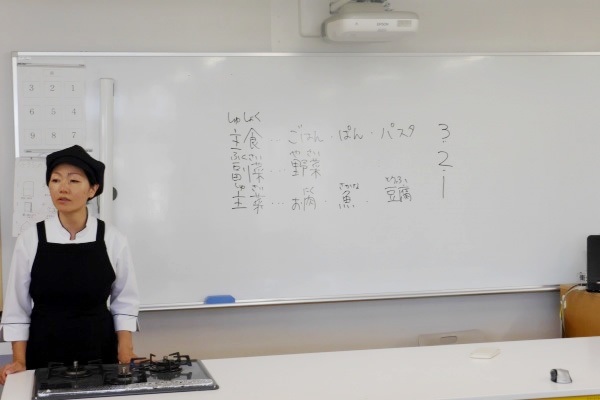 しゅしょく
主食…ごはん・ぱん・パスタ 3
ふくさい やさい
副菜…野菜 2
しゅさい にく さかな とうふ
主菜…お肉・魚・豆腐 1
3 2 1
6 5 4
9 8 7
EPSON